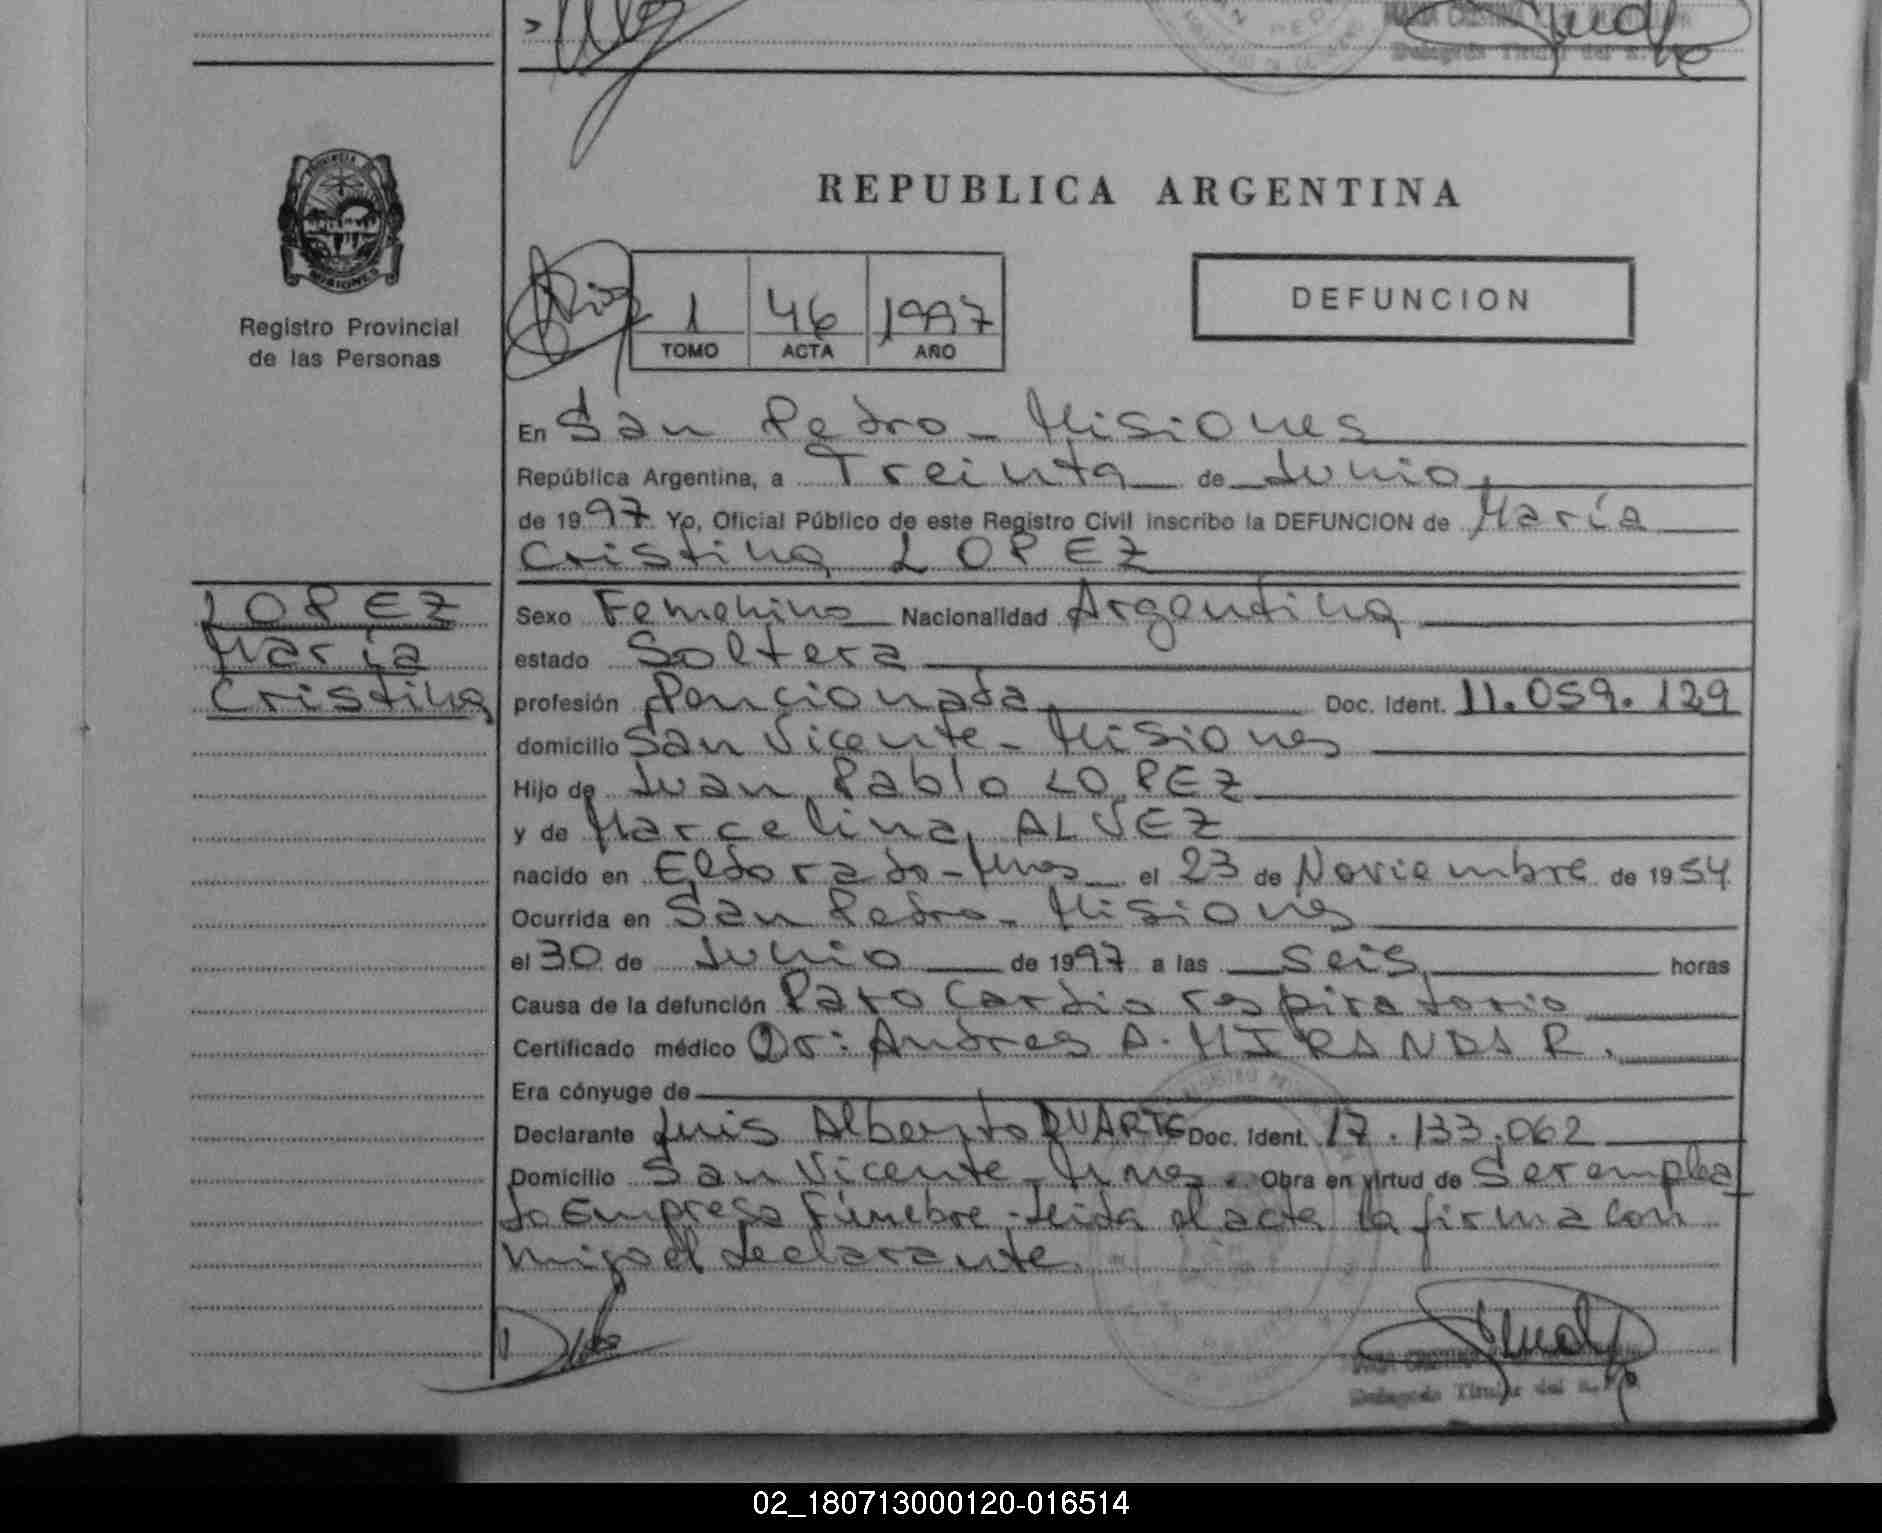 Delegado Titular del R.
REPUBLICA ARGENTINA
Registro Provincial
de las Personas
1 46 1997
TOMO ACTA AÑO
DEFUNCION
En San Pedro - Misiones
República Argentina, a Treinta de Junio
de 1997 Yo, Oficial Público de este Registro Civil inscribo la DEFUNCION de María
Cristina LOPEZ
LOPEZ
María
Cristina
Sexo Femenino Nacionalidad Argentina
estado Soltera
profesión Pencionada Doc. Ident. 11.059.129
domicilio San Vicente - Misiones
Hijo de Juan Pablo LOPEZ
y de Marcelina ALVEZ
nacido en Eldorado - Mnes el 23 de Noviembre de 1954
Ocurrida en San Pedro - Misiones
el 30 de Junio de 1997 a las seis horas
Causa de la defunción Paro Cardio respiratorio
Certificado médico Dr: Andres A. MIRANDA R.
Era cónyuge de
Declarante Luis Alberto DUARTE Doc. Ident. 17.133.062
Domicilio San Vicente - Mnes. Obra en virtud de Ser emplea
do Empresa Fúnebre - leida el acta la firma con
migo el declarante.
Delegado Titular del R.
02_180713000120-016514